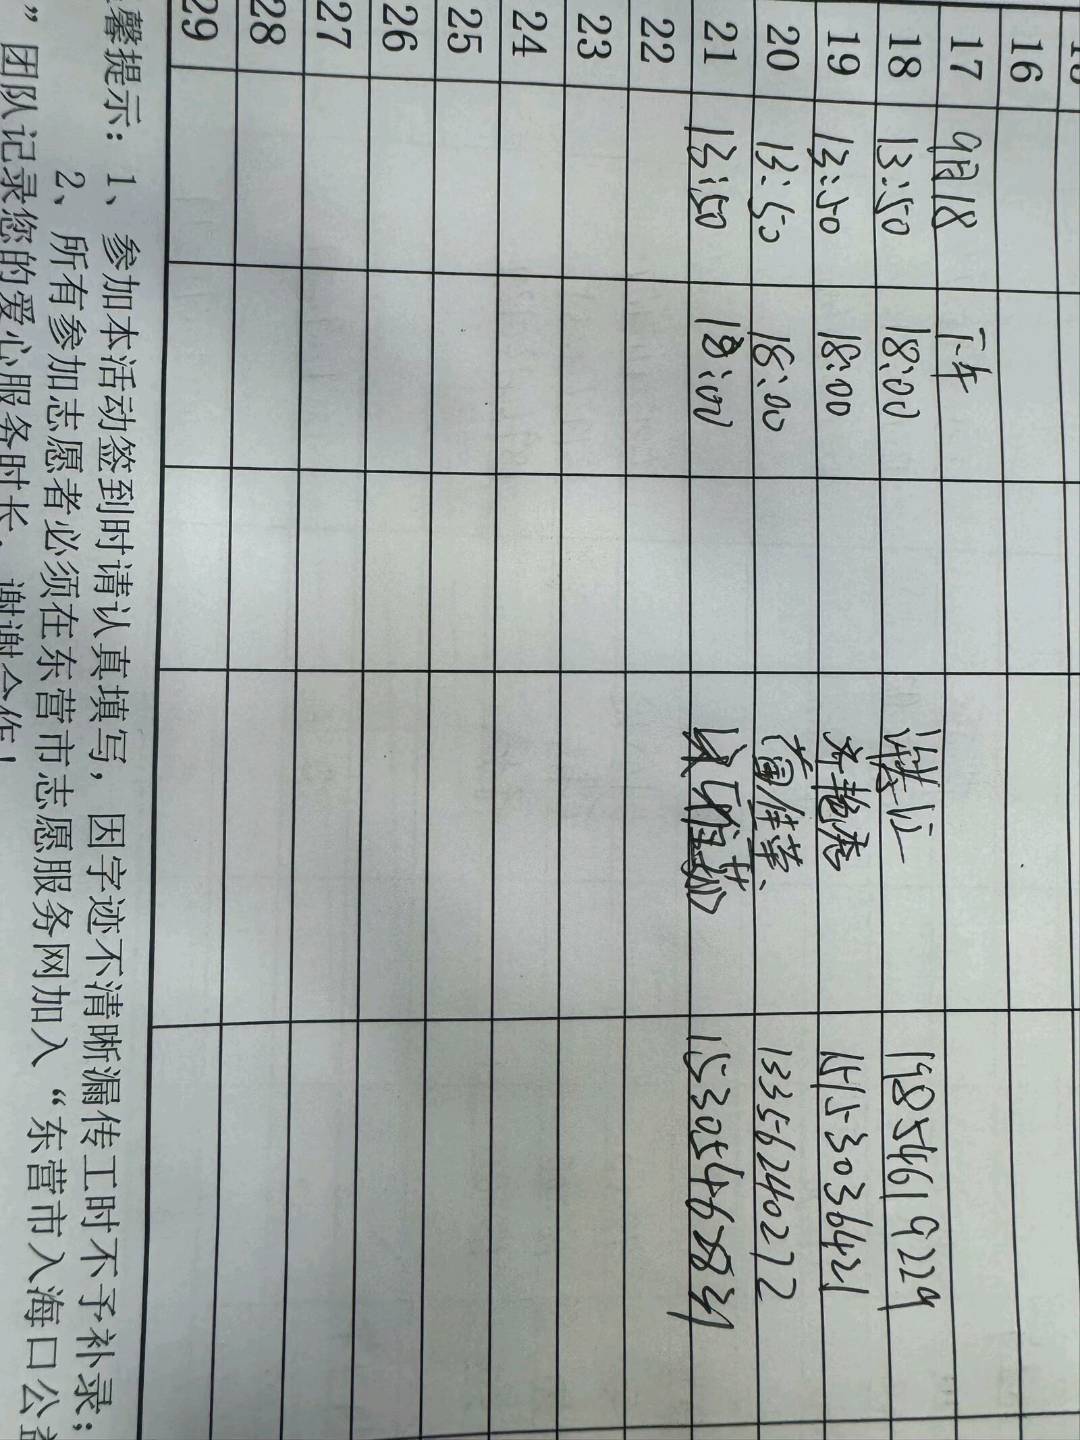 16
17 9月18 下午
18 13:50 18:00 19854619229
19 13:50 18:00 15153036421
20 13:50 18:00 蔺佳荣 13356240272
21 13:50 18:00 15305462831
22
23
24
25
26
27
28
29
馨提示：1、参加本活动签到时请认真填写，因字迹不清晰漏传工时不予补录；
2、所有参加志愿者必须在东营市志愿服务网加入“东营市入海口公益
”团队记录您的爱心服务时长，谢谢合作！